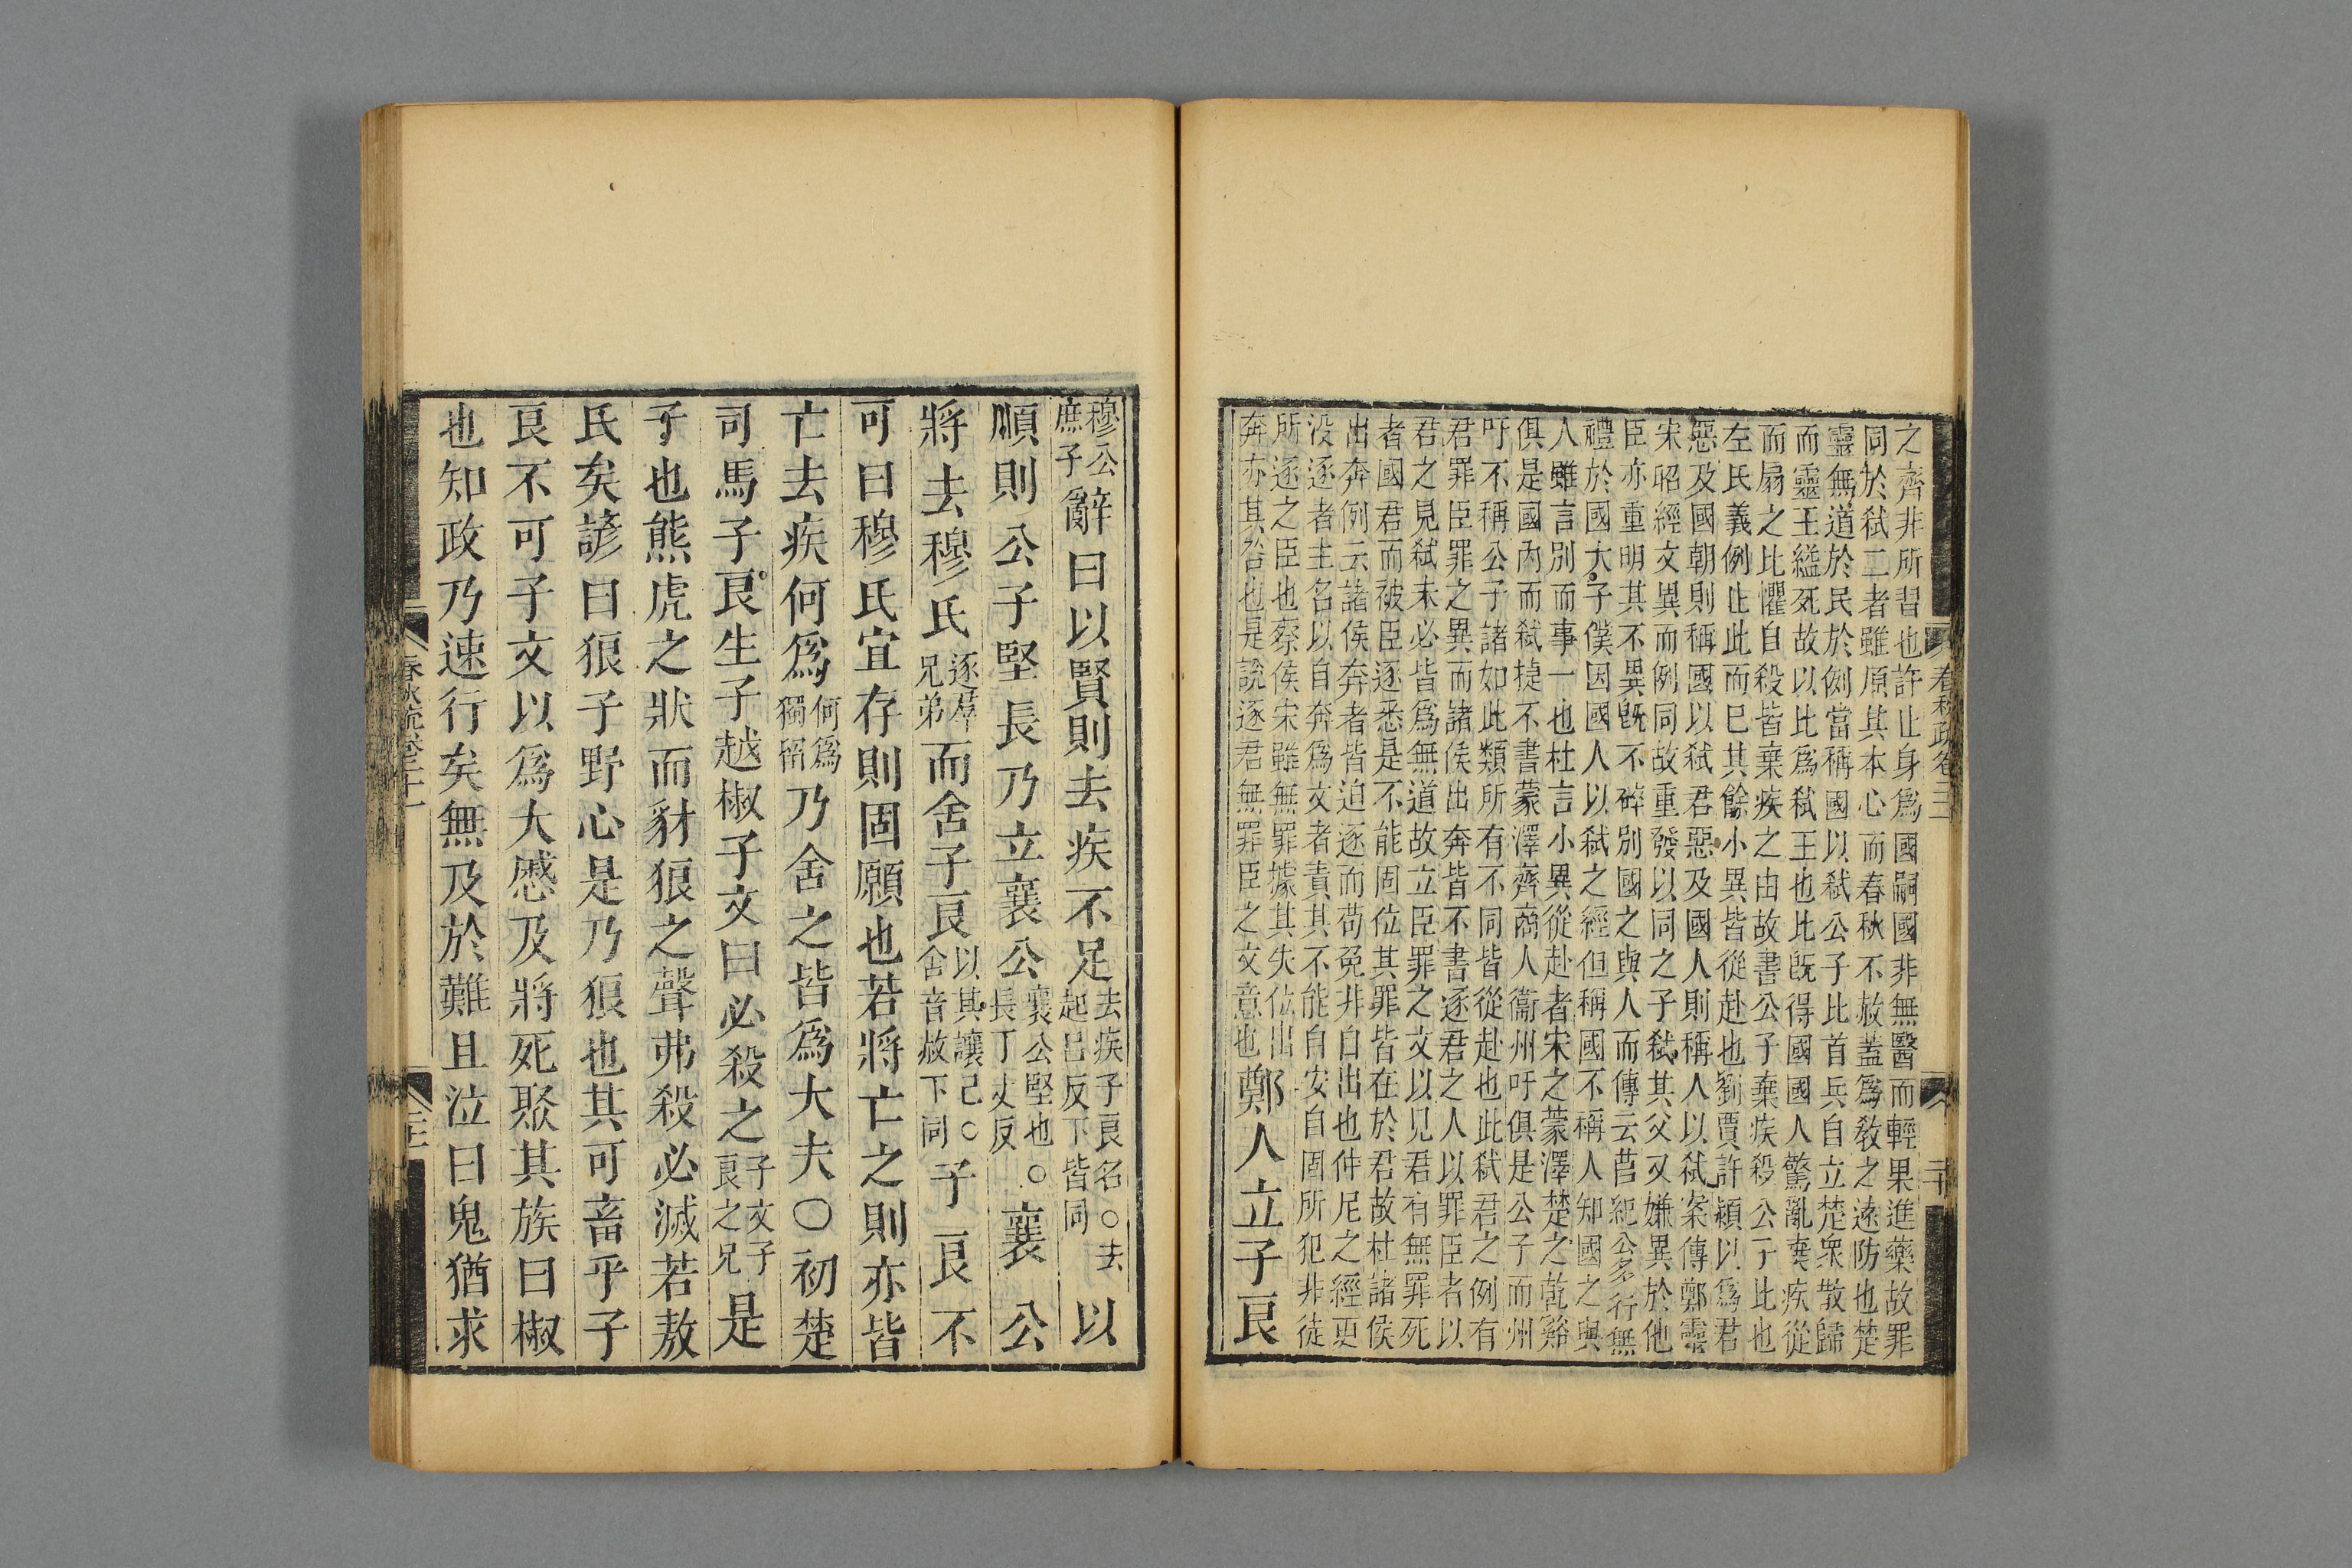 之齊非所習也許止身爲國嗣國非無醫而輕果進藥故罪
同於弑二者雖原其本心而春秋不赦蓋爲教之遠防也楚
靈無道於民於例當稱國以弑公子比首兵自立楚衆散歸
而靈王縊死故以比爲弑王也比既得國國人驚亂棄疾從
而扇之比懼自殺皆棄疾之由故書公子棄疾殺公子比也
左氏義例止此而已其餘小異皆從赴也劉賈許穎以爲君
惡及國朝則稱國以弑君惡及國人則稱人以弑案傳鄭靈
宋昭經文異而例同故重發以同之子弑其父又嫌異於他
臣亦重明其不異既不碎別國之與人而傳云莒紀公多行無
禮於國大子僕因國人以弑之經但稱國不稱人知國之與
人雖言別而事一也杜言小異從赴者宋之蒙澤楚之乾谿
俱是國內而弑捷不書蒙澤齊商人衞州吁俱是公子而州
吁不稱公子諸如此類所有不同皆從赴也此弑君之例有
君罪臣罪之異而諸侯出奔皆不書逐君之人以罪臣者以
君之見弑未必皆爲無道故立臣罪之文以見君有無罪死
者國君而被臣逐悉是不能固位其罪皆在於君故杜諸侯
出奔例云諸侯奔者皆迫逐而苟免非自出也仲尼之經更
沒逐者主名以自奔爲文者責其不能自安自固所犯非徒
所逐之臣也蔡侯宋雖無罪據其失位出
奔亦其咎也是說逐君無罪臣之文意也鄭人立子良
穆公庶子辭曰以賢則去疾不足去疾子良名○去起呂反下皆同以
順則公子堅長乃立襄公襄公堅也○長丁丈反襄公
將去穆氏逐羣兄弟而舍子良以其讓己○舍音赦下同子良不
可曰穆氏宜存則固願也若將亡之則亦皆
亡去疾何爲何爲獨留乃舍之皆爲大夫○初楚
司馬子良生子越椒子文曰必殺之子文子良之兄是
子也熊虎之狀而豺狼之聲弗殺必滅若敖
氏矣諺曰狼子野心是乃狼也其可畜乎子
良不可子文以爲大慼及將死聚其族曰椒
也知政乃速行矣無及於難且泣曰鬼猶求
春秋疏卷二十一